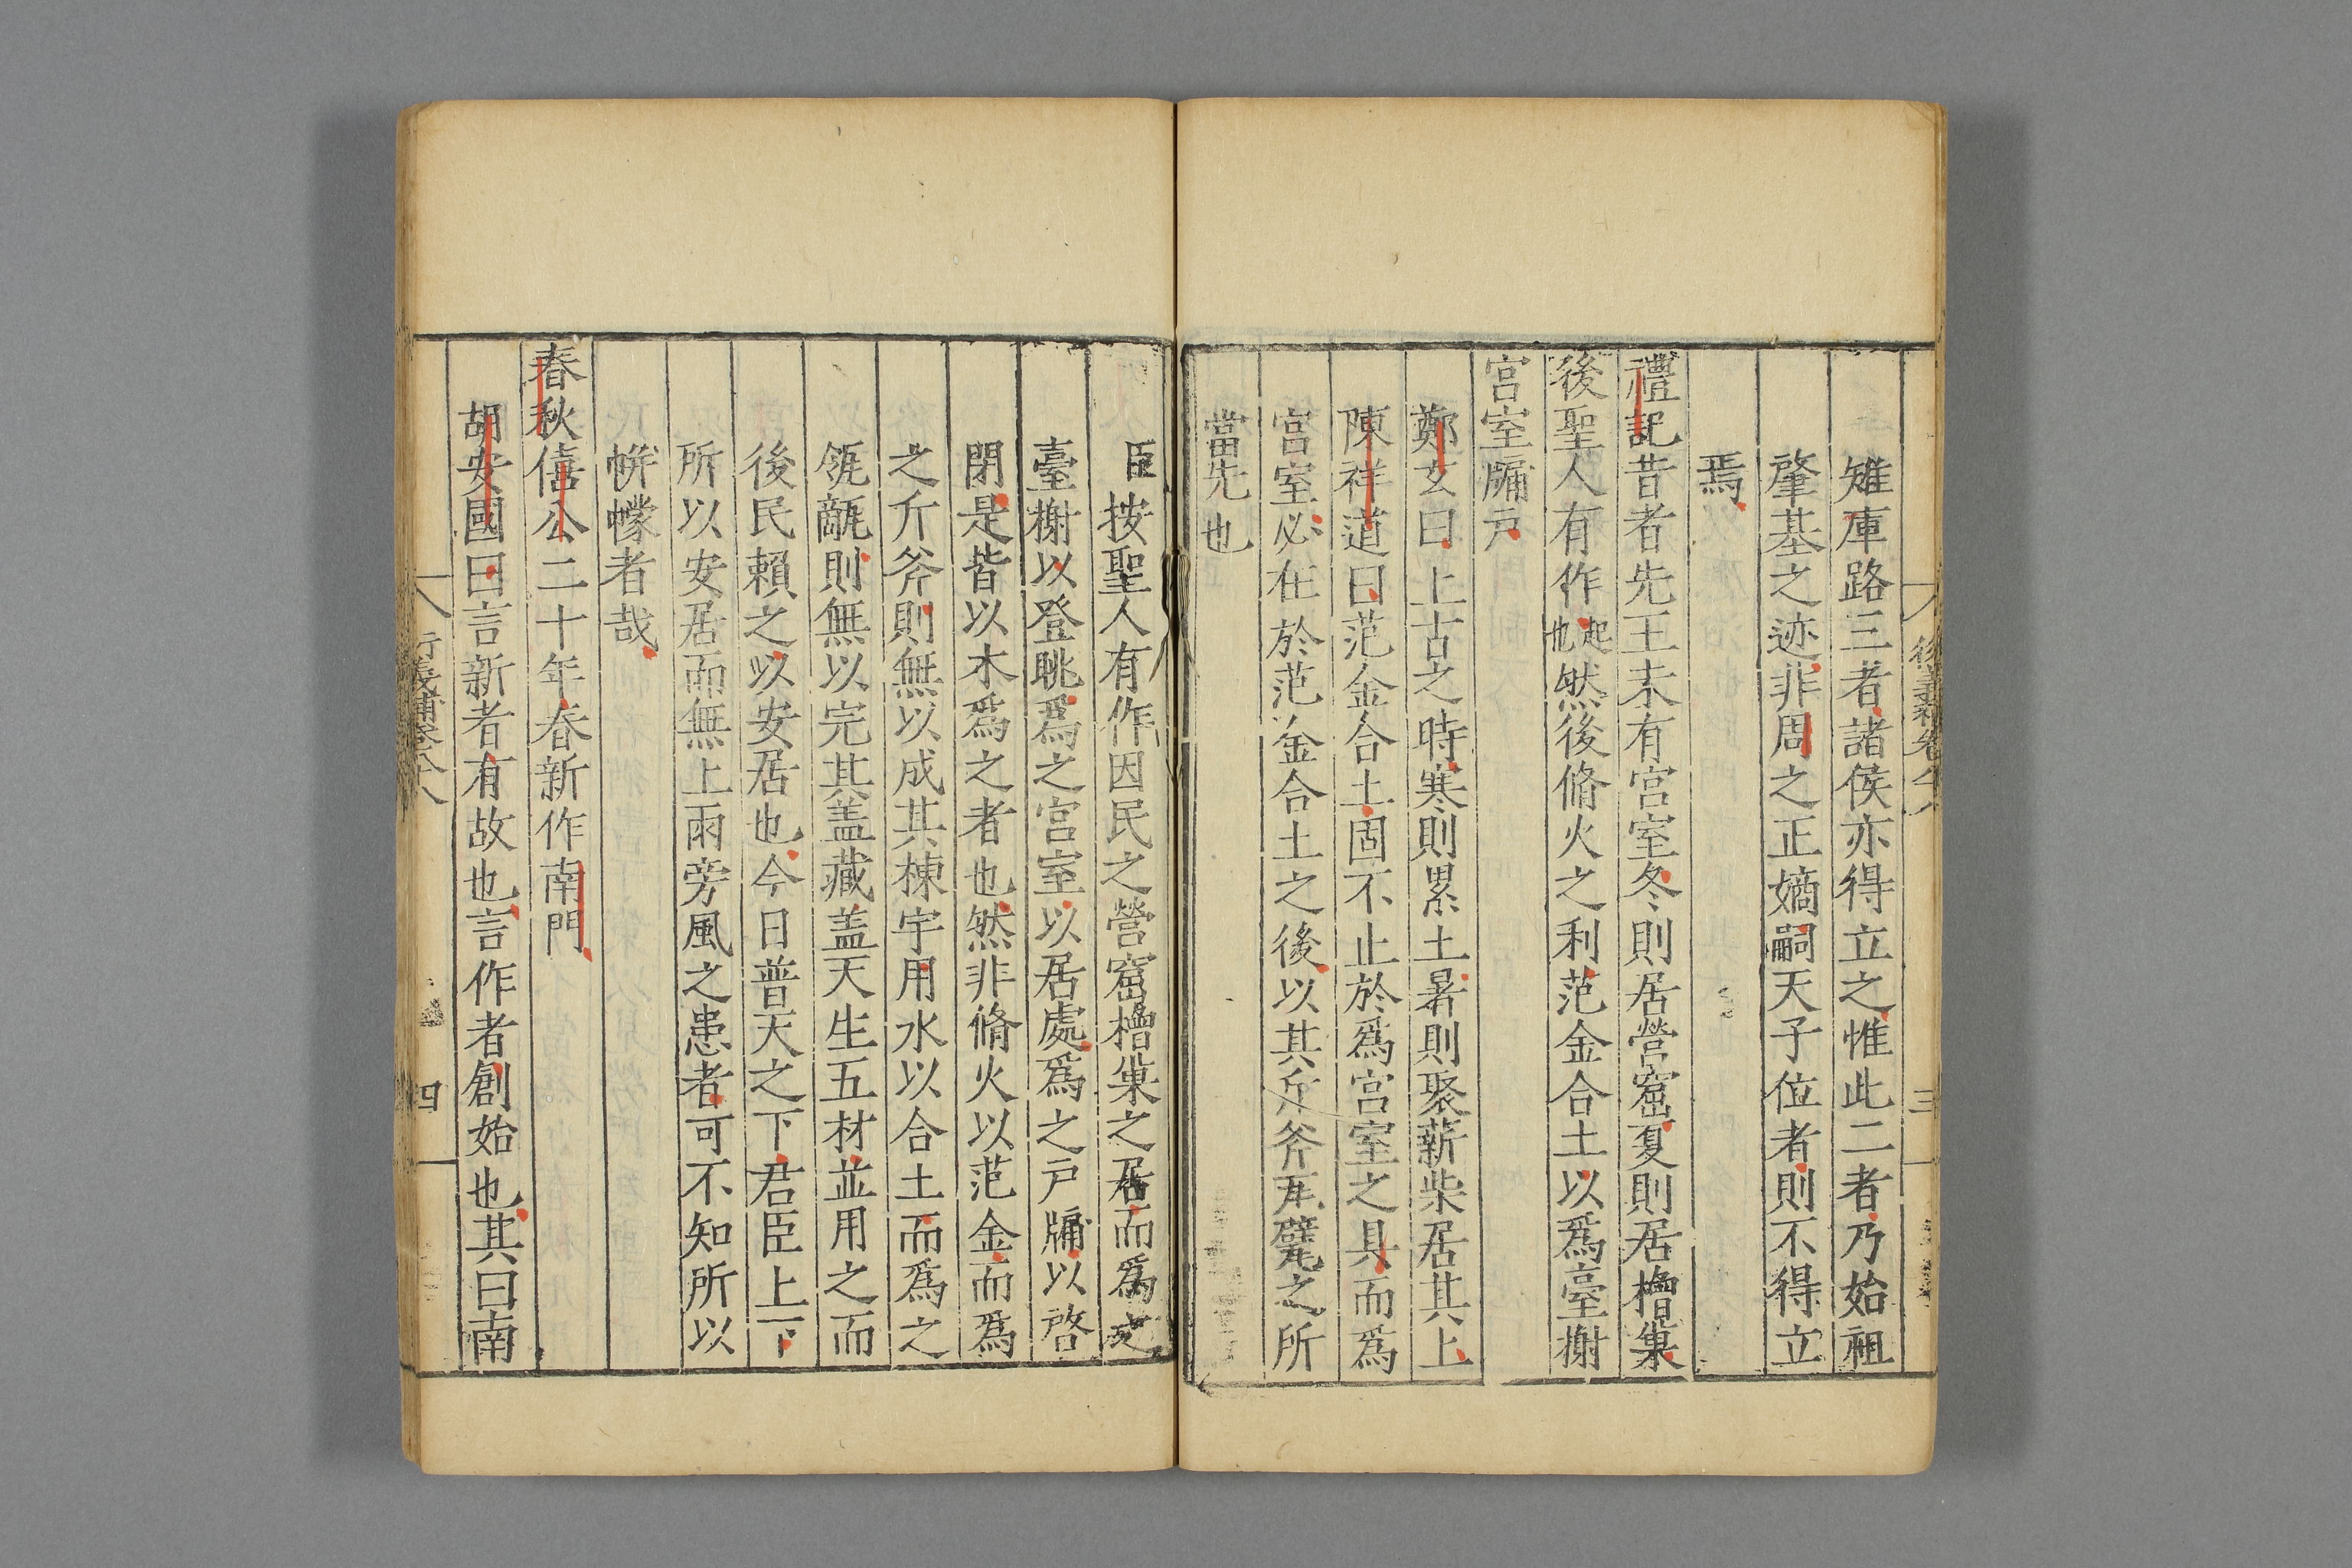 雉庫路三者諸侯亦得立之惟此二者乃始祖
肇基之迹非周之正嫡嗣天子位者則不得立
焉
禮記昔者先王未有宮室冬則居營窟夏則居橧巢
後聖人有作起也然後脩火之利范金合土以爲臺榭
宮室牖戶
鄭玄曰上古之時寒則累土暑則聚薪柴居其上
陳祥道曰范金合土固不止於爲宮室之具而爲
宮室必在於范金合土之後以其斤斧瓦甓之所
當先也
臣按聖人有作因民之營窟橧巢之居而爲之
臺榭以登眺爲之宮室以居處爲之戶牖以啓
閉是皆以木爲之者也然非脩火以范金而爲
之斤斧則無以成其棟宇用水以合土而爲之
瓴甋則無以完其盖藏盖天生五材並用之而
後民賴之以安居也今日普天之下君臣上下
所以安居而無上雨旁風之患者可不知所以
帡幪者哉
春秋僖公二十年春新作南門
胡安國曰言新者有故也言作者創始也其曰南
衍義補卷八十八
四